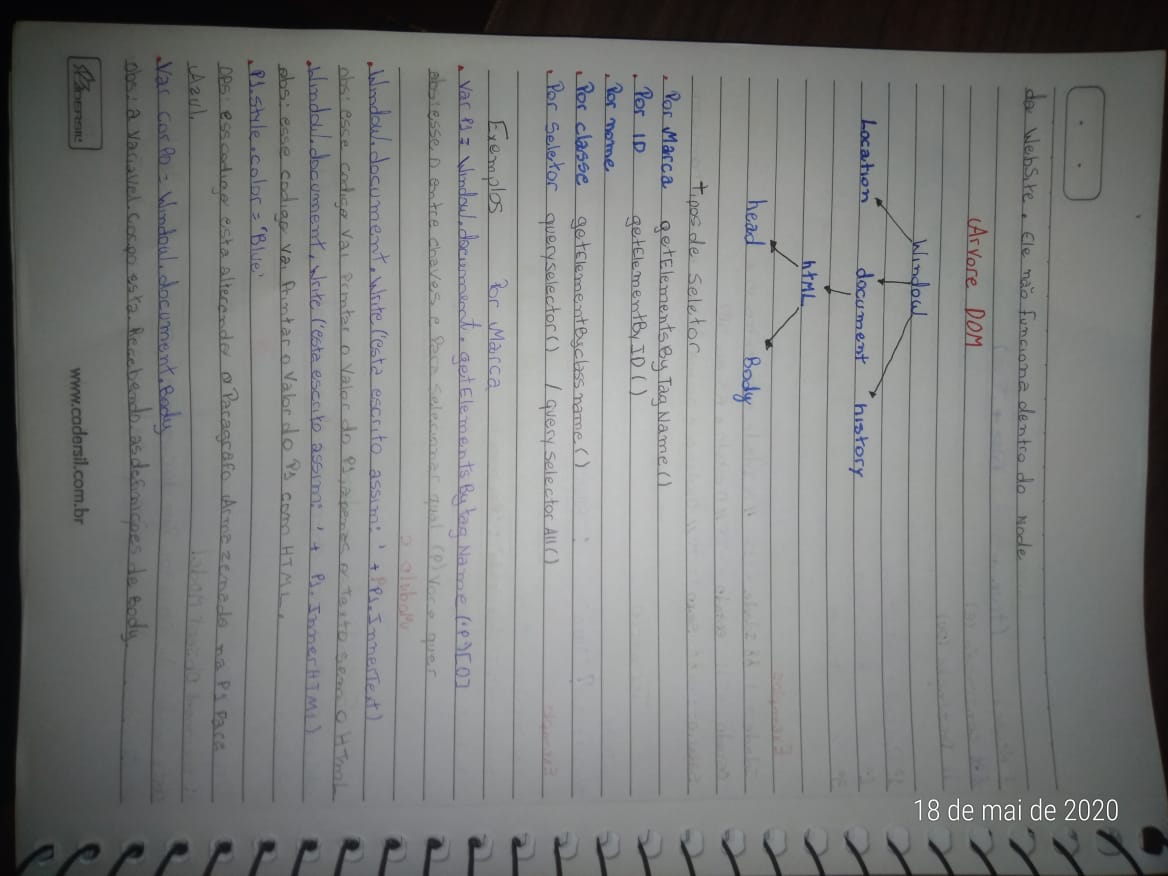 da WebSite. Ele não funciona dentro do Node
(Arvore DOM
Window
Location document history
html
head Body
tipos de Seletor
Por Marca getElementsByTagName()
Por ID getElementByID()
Por nome
Por classe getElementByclassname()
Por Seletor queryselector() / querySelectorAll()
Exemplos Por Marca
Var P1 = Window.document.getElementsBytagName('P')[0]
obs: esse n entre chaves e Para selecionar qual (P) Voce quer
Window.document.write('esta escrito assim: ' + P1.InnerText)
obs: esse codigo vai Printar o Valor do P1, apenas o Texto sem o HTML
Window.document.write('esta escrito assim: ' + P1.InnerHTML)
obs: esse codigo vai Printar o Valor do P1 com HTML.
P1.style.color = 'Blue'
obs: esse codigo esta alterando o Paragrafo Armazenado na P1 Para
(Azul).
Var corpo = Window.document.Body
obs: a Variavel corpo esta Recebendo as definições de Body.
www.codersil.com.br
18 de mai de 2020